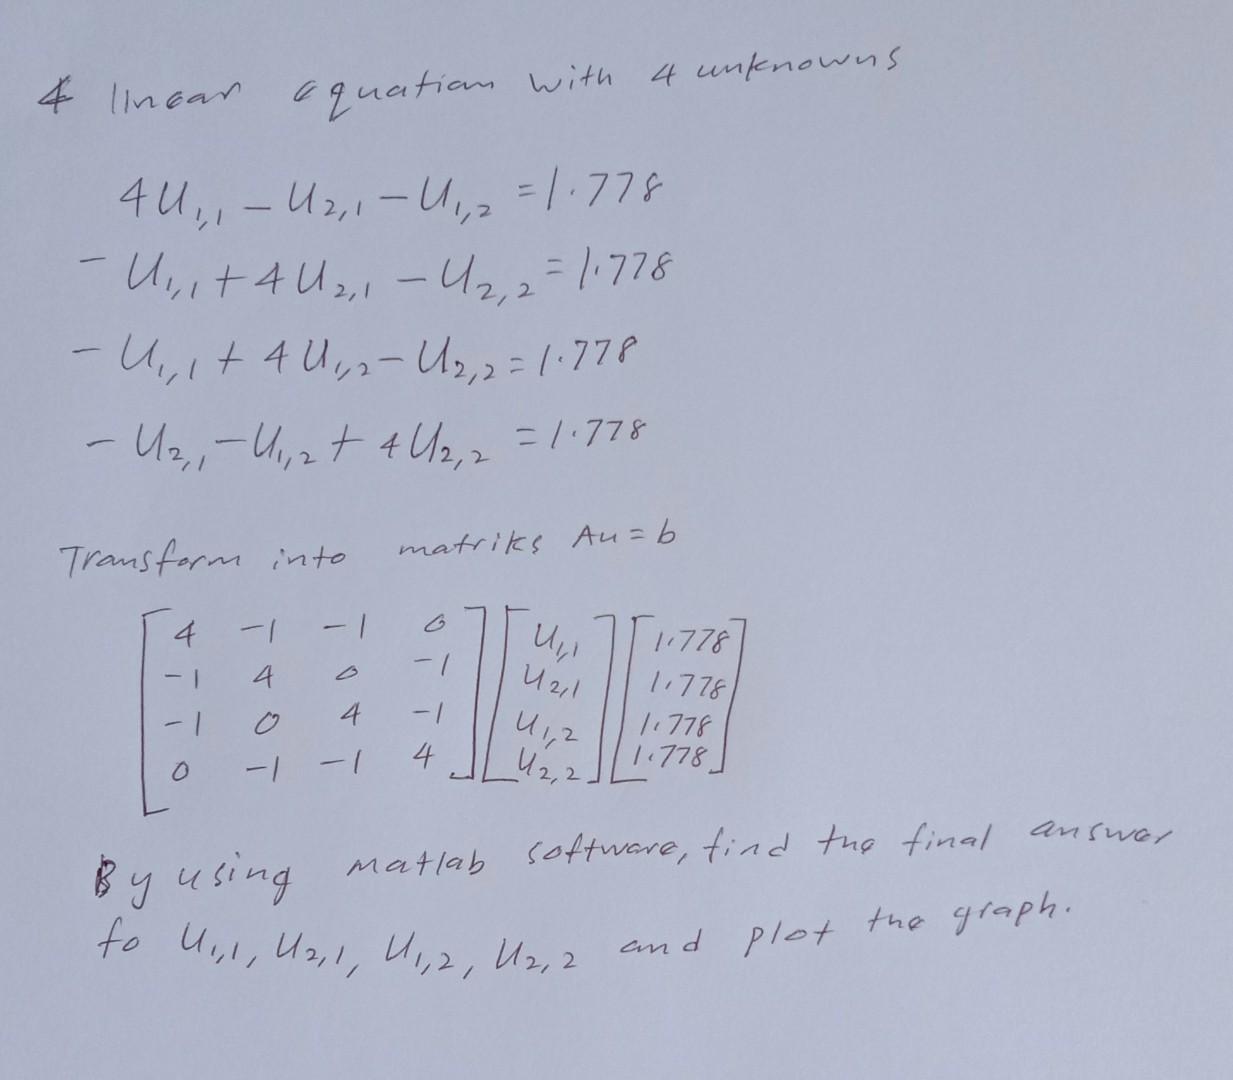 4 linear equation with 4 unknowns
4U1,1 − U2,1 − U1,2 = 1.778
− U1,1 + 4U2,1 − U2,2 = 1.778
− U1,1 + 4U1,2 − U2,2 = 1.778
− U2,1 − U1,2 + 4U2,2 = 1.778
Transform into matriks Au = b
[4 −1 −1 0] [U1,1] [1.778]
[−1 4 0 −1] [U2,1] [1.778]
[−1 0 4 −1] [U1,2] [1.778]
[0 −1 −1 4] [U2,2] [1.778]
By using matlab software, find the final answer
to U1,1, U2,1, U1,2, U2,2 and plot the graph.